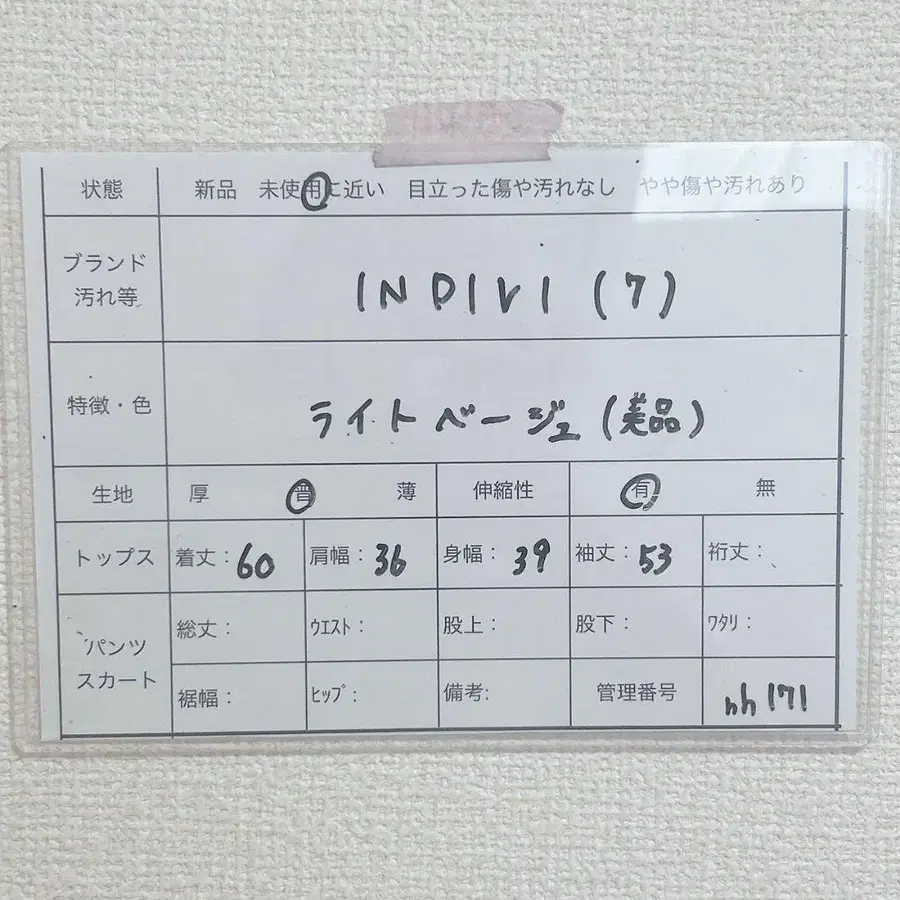 状態 新品 未使用に近い 目立った傷や汚れなし やや傷や汚れあり
ブランド
汚れ等
INDIVI (7)
特徴・色 ライトベージュ(美品)
生地 厚 普 薄 伸縮性 有 無
トップス 着丈:60 肩幅:36 身幅:39 袖丈:53 裄丈:
パンツ
スカート
総丈: ウエスト: 股上: 股下: ワタリ:
裾幅: ヒップ: 備考: 管理番号 hh171